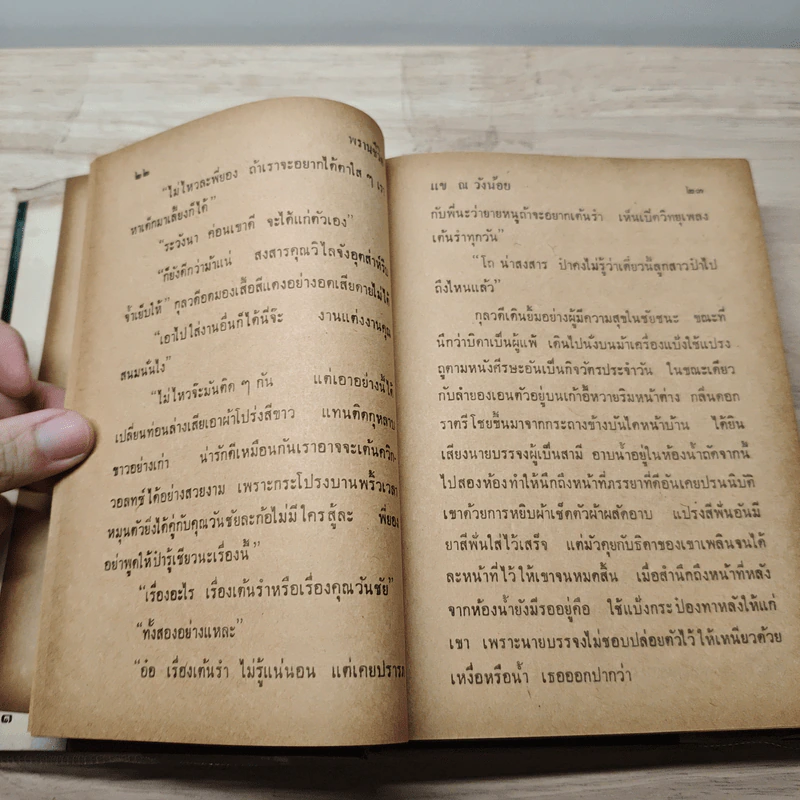 ๒๒
พรานชีวิต
“ไม่ไหวละพี่ยอง ถ้าเราจะอยากได้ตาใส ๆ
หาเด็กมาเลี้ยงก็ได้”
“ระวังนา ค่อนเขาดี จะได้แก่ตัวเอง”
“ก็ยังดีกว่าม้าแน่ สงสารคุณวิไลจังอุตส่าห์รีบ
จ้ำเย็บให้” กุลวดีอดมองเสื้อสีแดงอย่างอดเสียดายไม่ได้
“เอาไปใส่งานอื่นก็ได้นี่จ๊ะ งานแต่งงานคุณ
สนมนั่นไง”
“ไม่ไหวจ๊ะมันติด ๆ กัน แต่เอาอย่างนี้ได้
เปลี่ยนท่อนล่างเสียเอาผ้าโปร่งสีขาว แทนติดกุหลาบ
ขาวอย่างเก่า น่ารักดีเหมือนกันเราอาจจะเต้นควิก
วอลทซ์ได้อย่างสวยงาม เพราะกระโปรงบานพริ้วเวลา
หมุนตัวยิ่งได้คู่กับคุณวันชัยละก้อไม่มีใครสู้ละ พี่ยอง
อย่าพูดให้ป๋ารู้เชียวนะเรื่องนี้”
“เรื่องอะไร เรื่องเต้นรำหรือเรื่องคุณวันชัย”
“ทั้งสองอย่างแหละ”
“อ๋อ เรื่องเต้นรำ ไม่รู้แน่นอน แต่เคยปรารภ
แข ณ วังน้อย
๒๓
กับพี่นะว่ายายหนูถ้าจะอยากเต้นรำ เห็นเปิดวิทยุเพลง
เต้นรำทุกวัน”
“โถ น่าสงสาร ป๋าคงไม่รู้ว่าเดี๋ยวนี้ลูกสาวป๋าไป
ถึงไหนแล้ว”
กุลวดีเดินยิ้มอย่างผู้มีความสุขในชัยชนะ ขณะที่
นึกว่าบิดาเป็นผู้แพ้ เดินไปนั่งบนม้าเครื่องแป้งใช้แปรง
ถูตามหนังศีรษะอันเป็นกิจวัตรประจำวัน ในขณะเดียว
กับลำยองเอนตัวอยู่บนเก้าอี้หวายริมหน้าต่าง กลิ่นดอก
ราตรีโชยขึ้นมาจากกระถางข้างบันไดหน้าบ้าน ได้ยิน
เสียงนายบรรจงผู้เป็นสามี อาบน้ำอยู่ในห้องน้ำถัดจากนี้
ไปสองห้องทำให้นึกถึงหน้าที่ภรรยาที่ดีอันเคยปรนนิบัติ
เขาด้วยการหยิบผ้าเช็ดตัวผ้าผลัดอาบ แปรงสีฟันอันมี
ยาสีฟันใส่ไว้เสร็จ แต่มัวคุยกับธิดาของเขาเพลินจนได้
ละหน้าที่ไว้ให้เขาจนหมดสิ้น เมื่อสำนึกถึงหน้าที่หลัง
จากห้องน้ำยังมีรออยู่คือ ใช้แป้งกระป๋องทาหลังให้แก่
เขา เพราะนายบรรจงไม่ชอบปล่อยตัวไว้ให้เหนียวด้วย
เหงื่อหรือน้ำ เธอออกปากว่า